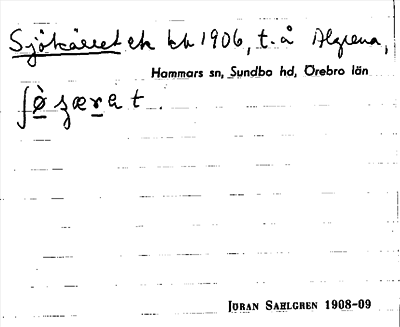 Sjökärret ek kk 1906, t. å Algrena,
Hammars sn, Sundbo hd, Örebro län
ʃø̀ʒærat.
JÖRAN SAHLGREN 1908-09